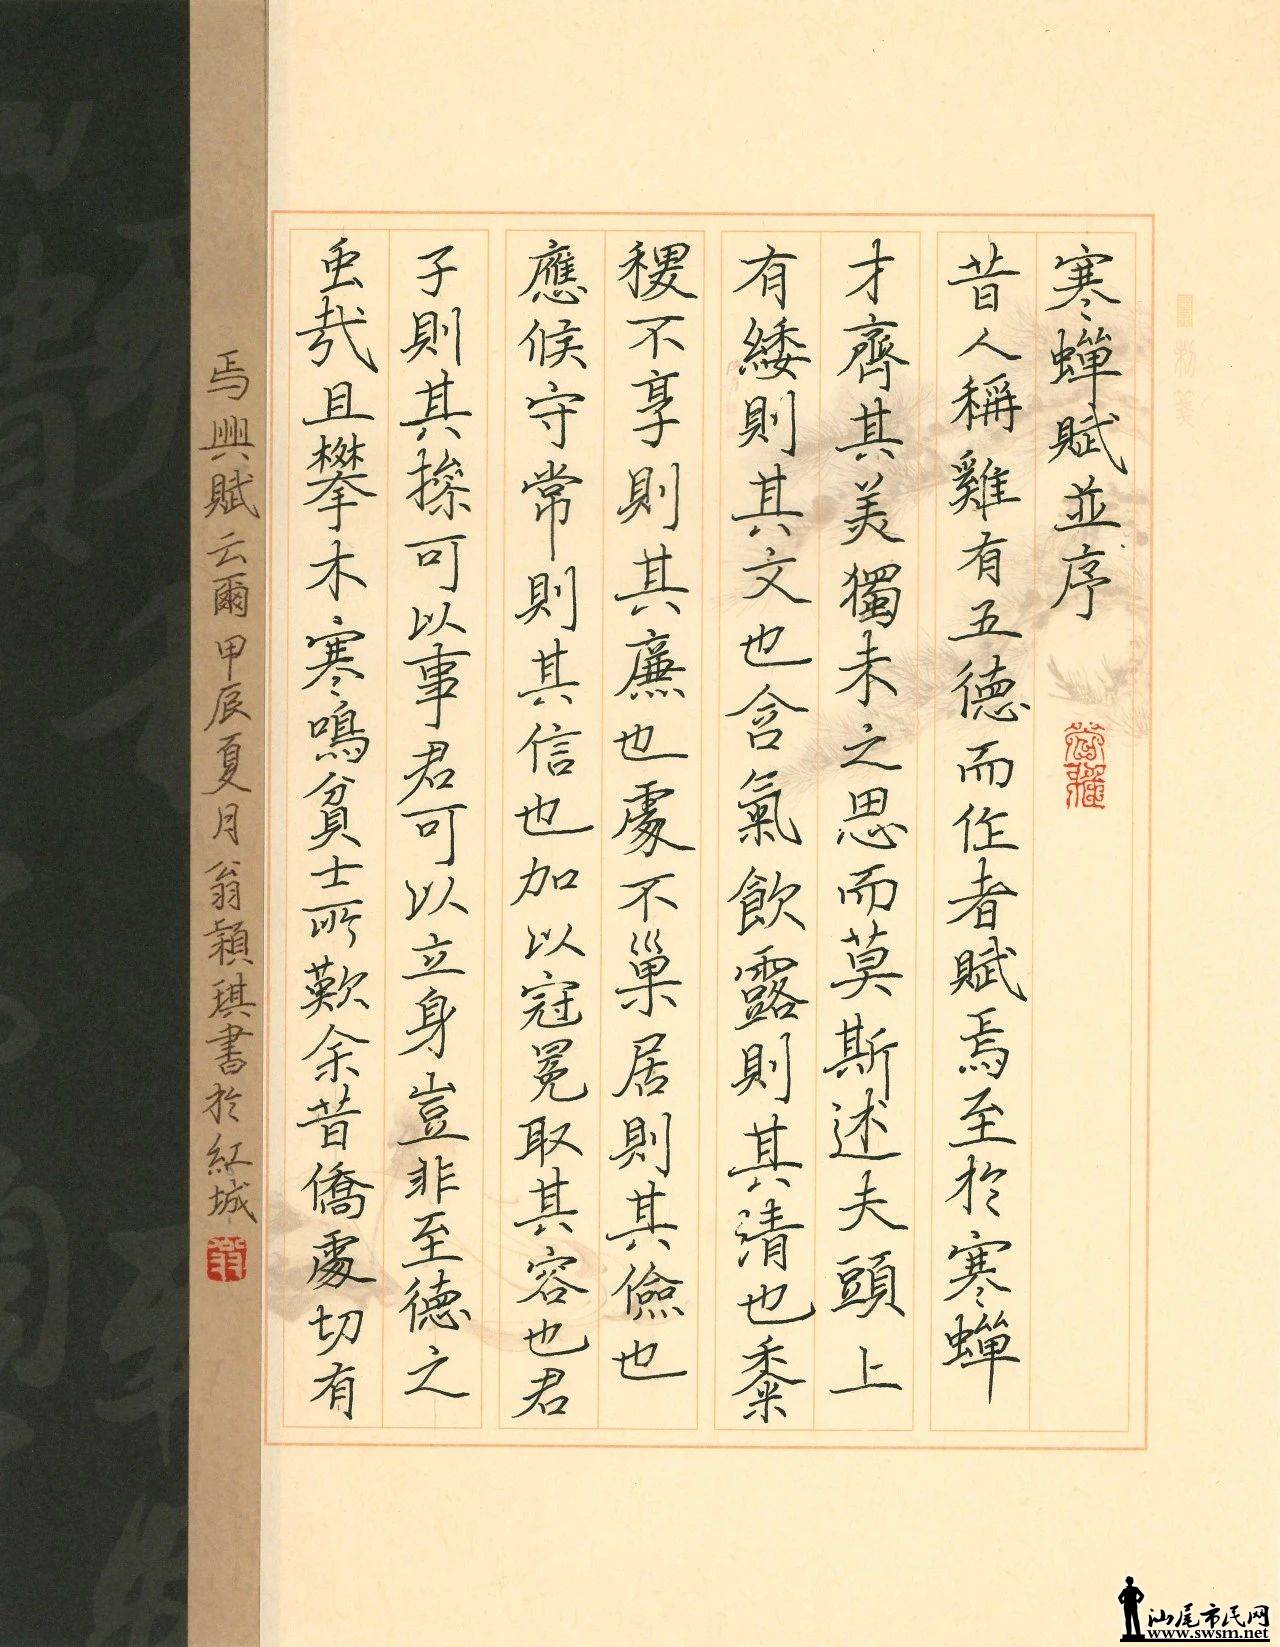 寒蟬賦並序
昔人稱雞有五德而作者賦焉至於寒蟬
才齊其美獨未之思而莫斯述夫頭上
有緌則其文也含氣飲露則其清也黍
稷不享則其廉也處不巢居則其儉也
應候守常則其信也加以冠冕取其容也君
子則其操可以事君可以立身豈非至德之
虫哉且攀木寒鳴貧士所歎余昔僑處切有
焉興賦云爾甲辰夏月翁穎琪書於紅城
汕尾市民网
www.swsm.net